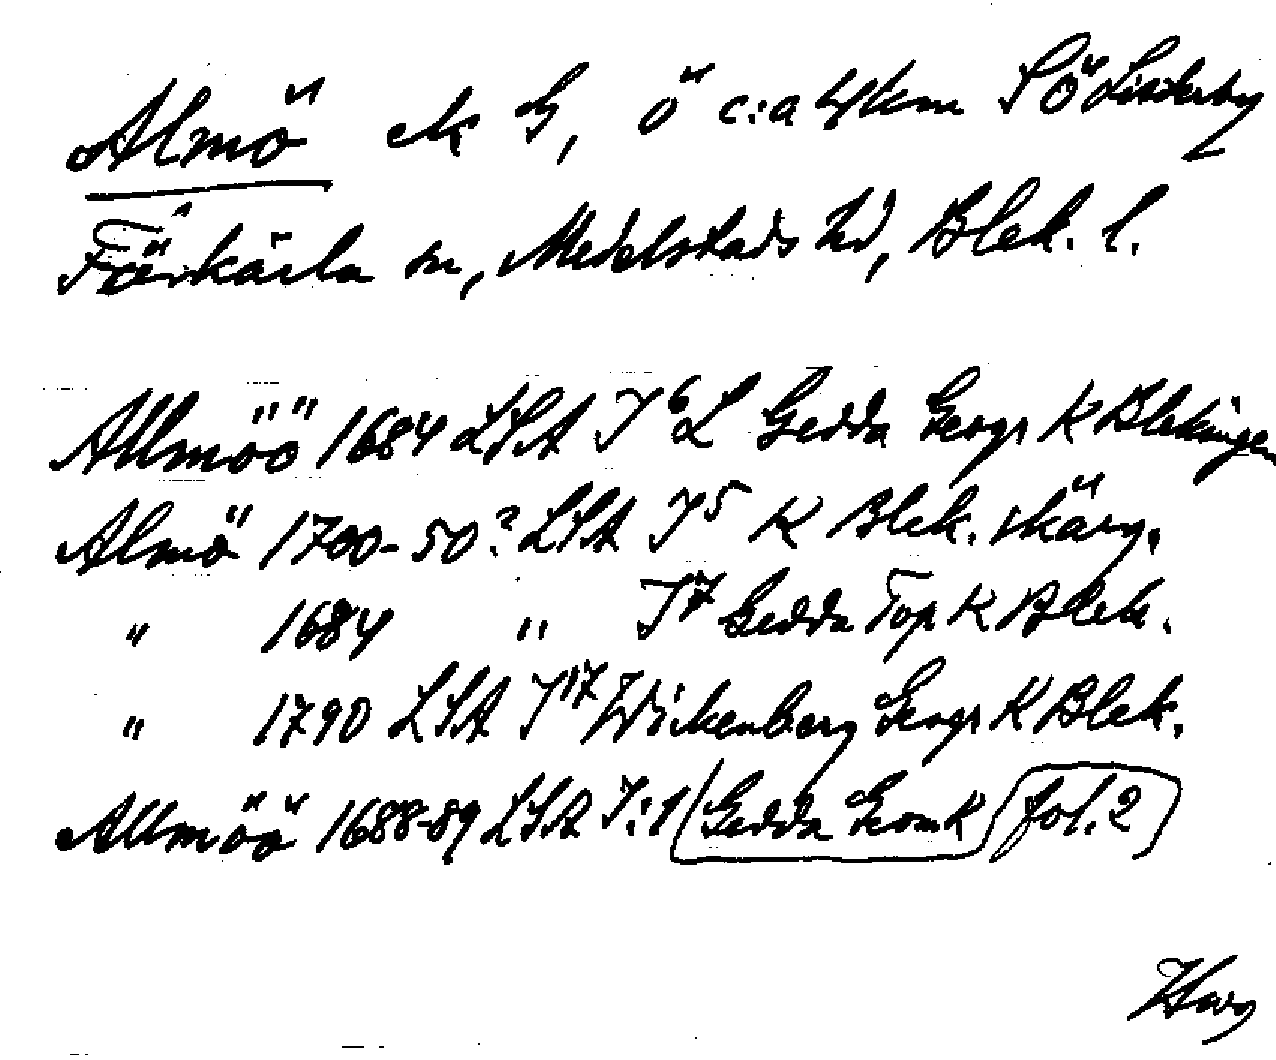 Almö ek G, ö c:a 4 km SÖ Listerby
Förkärla sn, Medelstads hd, Blek. l.
Allmöö 1684 LSA I 6 L Gedda Geogr K Blekingen
Almö 1700-50? LSA I 5 K Blek. skärg.
" 1684 " I 7 Gedda Top K Blek.
" 1790 LSA I 17 Wickenberg Geogr K Blek.
Allmöö 1688-89 LSA I:1 (Gedda Geom K (fol. 2)